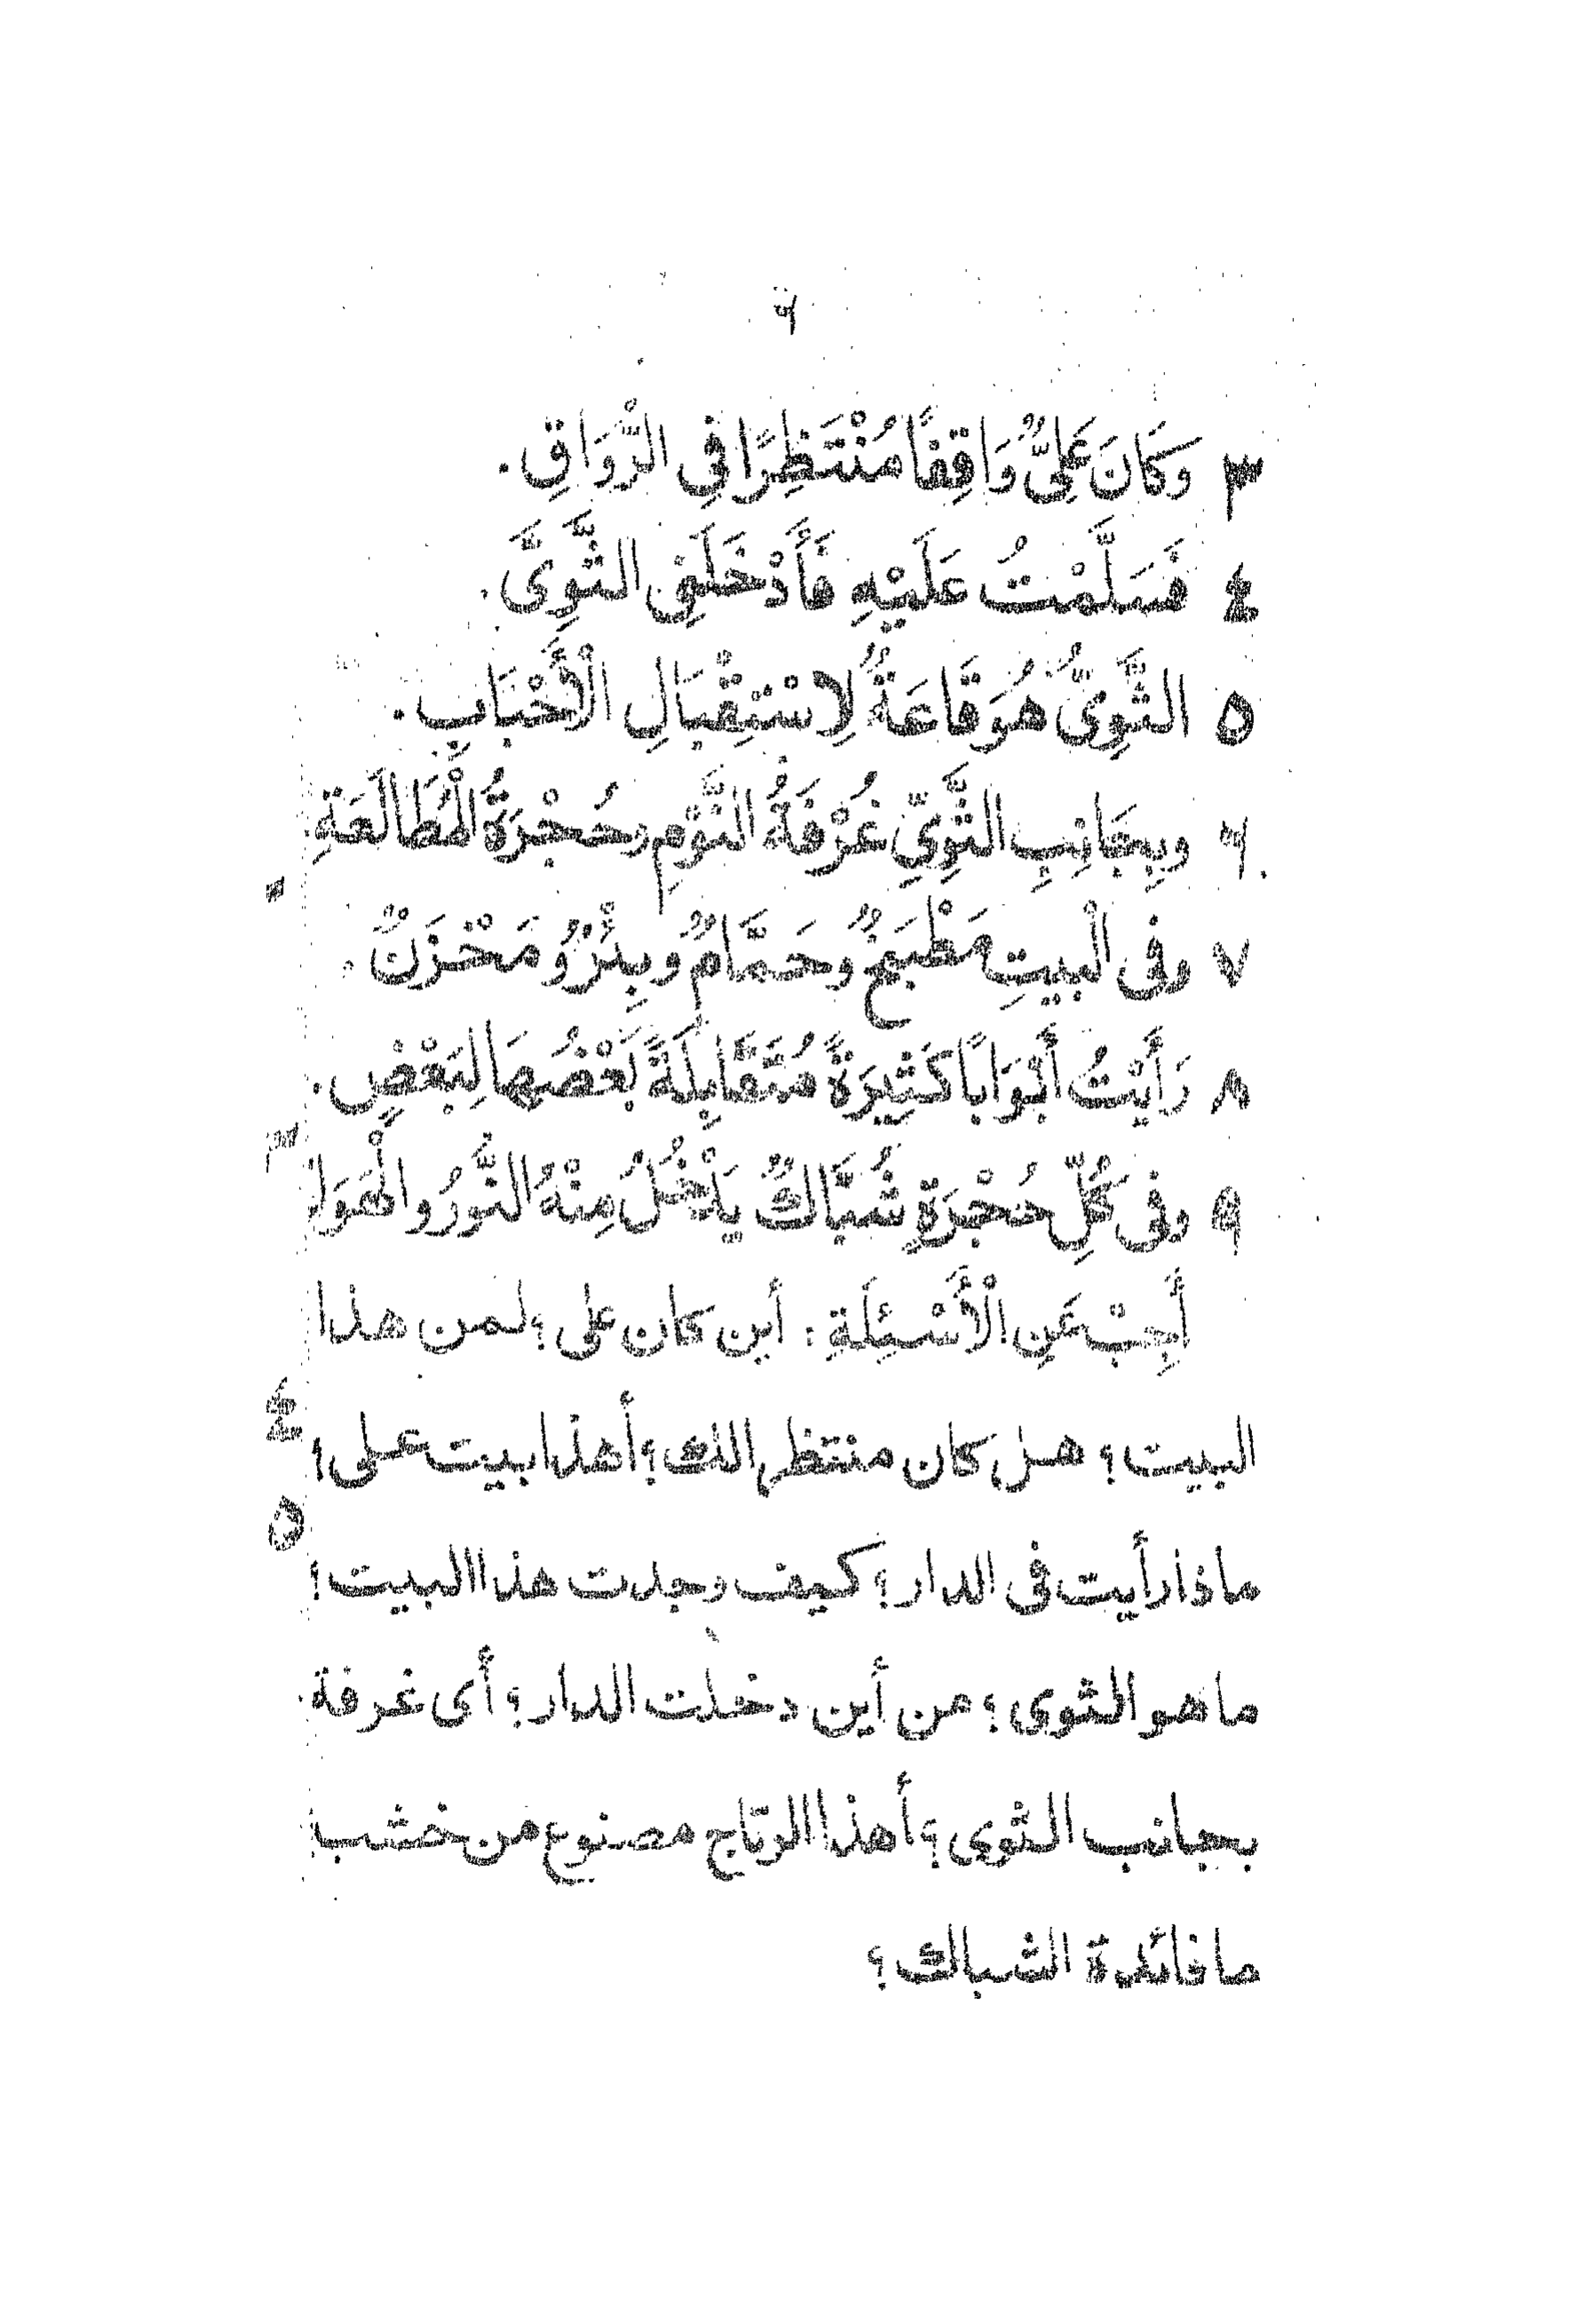 ٦
٣ وَكَانَ عَلِيٌّ وَاقِفًا مُنْتَظِرًا فِي الرِّوَاقِ.
٤ فَسَلَّمْتُ عَلَيْهِ فَأَدْخَلَنِي الثَّوِىَّ.
٥ الثَّوِىُّ هُوَ قَاعَةٌ لِاسْتِقْبَالِ الْأَحْبَابِ.
٦ وبِجَانِبِ الثَّوِيِّ غُرْفَةُ النَّوْمِ وحُجْرَةُ الْمُطَالَعَةِ
٧ وفى الْبيتِ مَطْبَخٌ وَحَمَّامٌ وَبِئْرٌ وَمَخْزَنٌ.
٨ رَأَيْتُ أَبْوَابًا كَثِيرَةً مُتَقَابِلَةً بَعْضُهَا لِبَعْضٍ.
٩ وفى كُلِّ حُجْرَةٍ شُبَّاكٌ يَدْخُلُ مِنْهُ النُّورُ والْهَوَاء
أَجِبْ عَنِ الْأَسْئِلَةِ: أين كان على؟ لمن هذا
البيت؟ هل كان منتظرا لك؟ أهذا بيت على؟
ماذا رأيت فى الدار؟ كيف وجدت هذا البيت؟
ما هو الثوى؟ من أين دخلت الدار؟ أى غرفة
بجانب الثوى؟ أهذا الرتاج مصنوع من خشب
ما فائدة الشباك؟
٣
٤
٥